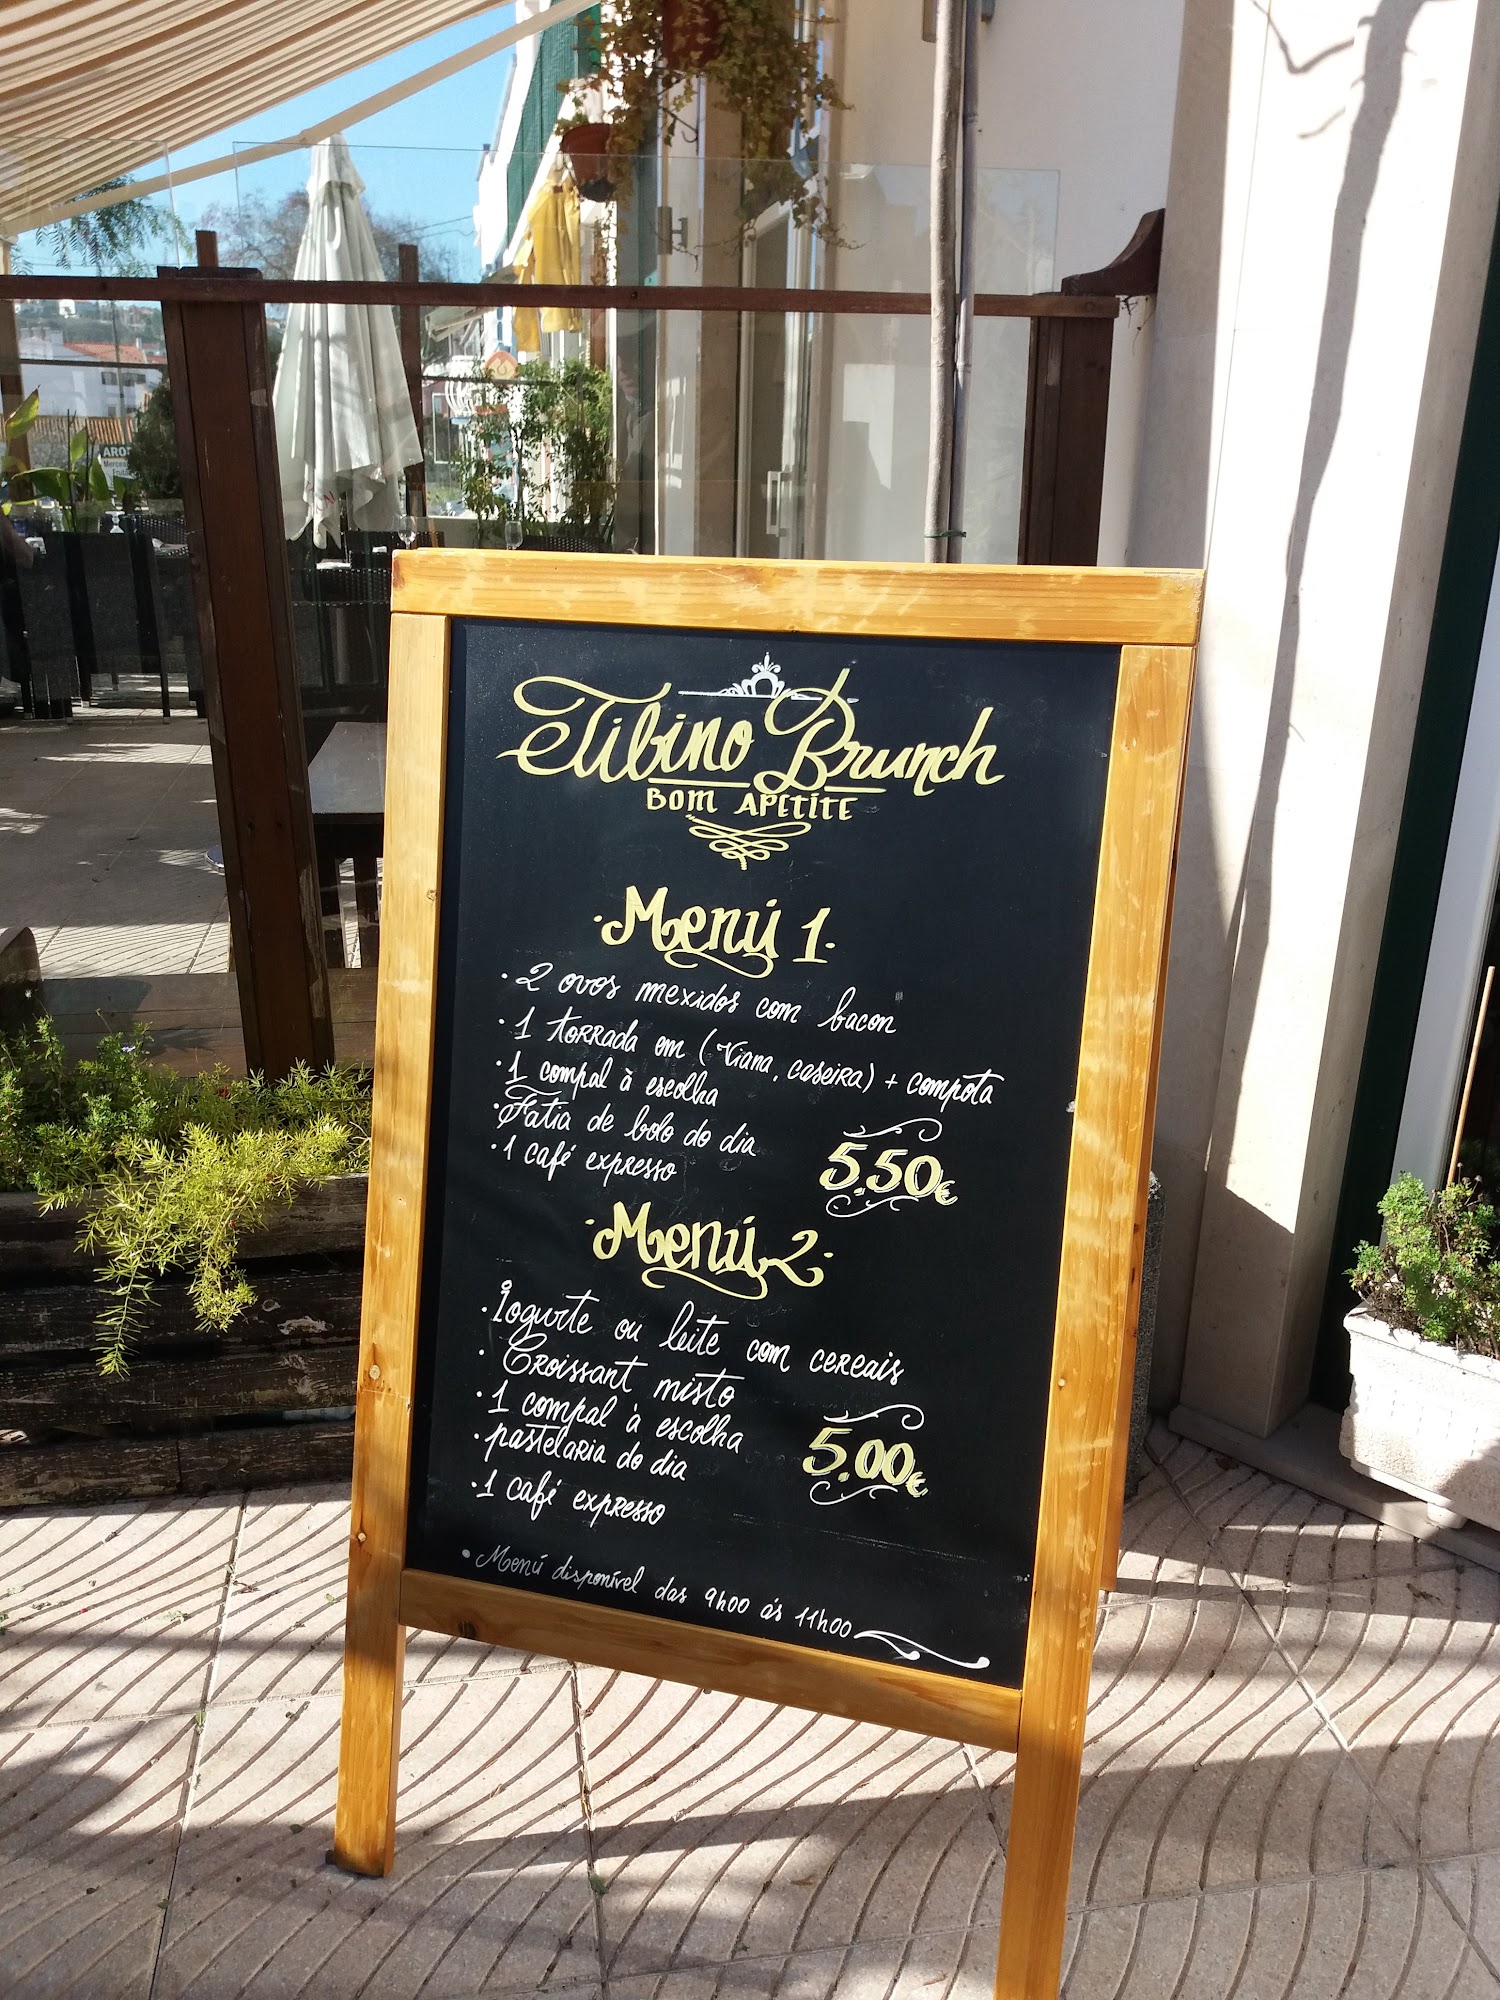 Tibino Brunch
BOM APETITE
Menú 1
· 2 ovos mexidos com bacon
· 1 torrada em (Viana, caseira) + compota
· 1 compal à escolha
· Fatia de bolo do dia
· 1 café expresso
5.50€
Menú 2
· Iogurte ou leite com cereais
· Croissant misto
· 1 compal à escolha
· pastelaria do dia
· 1 café expresso
5.00€
• Menú disponível das 9h00 ás 11h00